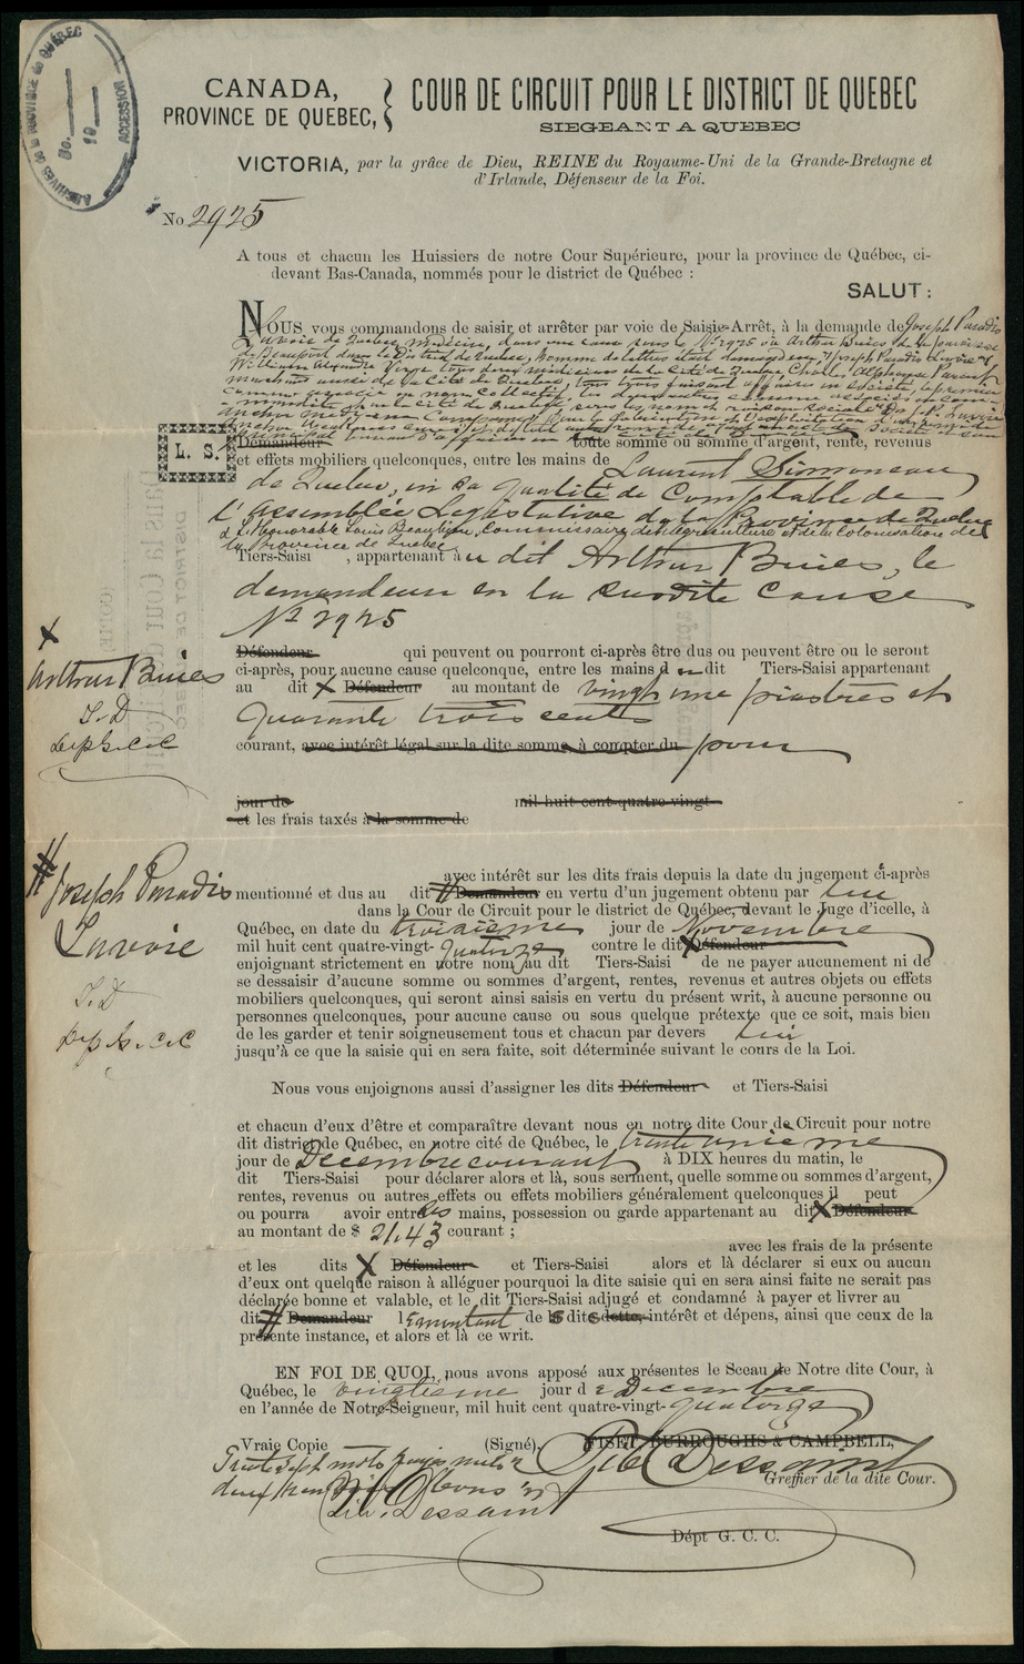 ARCHIVES de la PROVINCE de QUÉBEC
No.
19
ACCESSION
CANADA,
PROVINCE DE QUEBEC,
COUR DE CIRCUIT POUR LE DISTRICT DE QUEBEC
SIEGEANT A QUEBEC
VICTORIA, par la grâce de Dieu, REINE du Royaume-Uni de la Grande-Bretagne et
d'Irlande, Défenseur de la Foi.
No 2925
A tous et chacun les Huissiers de notre Cour Supérieure, pour la province de Québec, ci-
devant Bas-Canada, nommés pour le district de Québec :
SALUT :
NOUS vous commandons de saisir et arrêter par voie de Saisie-Arrêt, à la demande de Joseph Paradis
Lavoie de Québec, médecin, dans une cause sous le No 2925 où Arthur Buies de la paroisse
de Beauport dans le District de Québec, homme de lettres était demandeur, & Joseph Paradis Lavoie &
William Alexandre Verge tous deux médecins de la cité de Québec Charles Alphonse Parent
marchand aussi de la Cité de Québec, tous trois faisant affaires en société,
L. S.
Demandeur toute somme ou somme d'argent, rente, revenus
et effets mobiliers quelconques, entre les mains de Laurent Simoneau
de Québec, en sa qualité de Comptable de
l'Assemblée Législative de la Province de Québec
& L'Honorable Louis Beaubien, Commissaire de l'Agriculture et de la Colonisation de
la Province de Québec
Tiers-Saisi , appartenant au dit Arthur Buies, le
demandeur en la susdite cause
No 2925
X
Arthur Buies
J. D
Dep G. C. C
Défendeur qui peuvent ou pourront ci-après être dus ou peuvent être ou le seront
ci-après, pour aucune cause quelconque, entre les mains du dit Tiers-Saisi appartenant
au dit X Défendeur au montant de vingt une piastres et
quarante trois cents
courant, avec intérêt légal sur la dite somme, à compter du pour
jour de mil huit cent quatre-vingt-
et les frais taxés à la somme de
# Joseph Paradis
Lavoie
J. D
Dep G. C. C
avec intérêt sur les dits frais depuis la date du jugement ci-après
mentionné et dus au dit # Demandeur en vertu d'un jugement obtenu par lui
dans la Cour de Circuit pour le district de Québec, devant le Juge d'icelle, à
Québec, en date du troisième jour de Novembre
mil huit cent quatre-vingt-quatorze contre le dit X Défendeur
enjoignant strictement en notre nom au dit Tiers-Saisi de ne payer aucunement ni de
se dessaisir d'aucune somme ou sommes d'argent, rentes, revenus et autres objets ou effets
mobiliers quelconques, qui seront ainsi saisis en vertu du présent writ, à aucune personne ou
personnes quelconques, pour aucune cause ou sous quelque prétexte que ce soit, mais bien
de les garder et tenir soigneusement tous et chacun par devers lui
jusqu'à ce que la saisie qui en sera faite, soit déterminée suivant le cours de la Loi.
Nous vous enjoignons aussi d'assigner les dits Défendeur et Tiers-Saisi
et chacun d'eux d'être et comparaître devant nous en notre dite Cour de Circuit pour notre
dit district de Québec, en notre cité de Québec, le trente unième
jour de Decembre courant à DIX heures du matin, le
dit Tiers-Saisi pour déclarer alors et là, sous serment, quelle somme ou sommes d'argent,
rentes, revenus ou autres effets ou effets mobiliers généralement quelconques il peut
ou pourra avoir entre ses mains, possession ou garde appartenant au dit X Défendeur
au montant de $ 21.43 courant ;
avec les frais de la présente
et les dits X Défendeur et Tiers-Saisi alors et là déclarer si eux ou aucun
d'eux ont quelque raison à alléguer pourquoi la dite saisie qui en sera ainsi faite ne serait pas
déclarée bonne et valable, et le dit Tiers-Saisi adjugé et condamné à payer et livrer au
dit # Demandeur le montant de s dits dette, intérêt et dépens, ainsi que ceux de la
présente instance, et alors et là ce writ.
EN FOI DE QUOI, nous avons apposé aux présentes le Sceau de Notre dite Cour, à
Québec, le vingtième jour de Decembre
en l'année de Notre-Seigneur, mil huit cent quatre-vingt-quatorze
Vraie Copie (Signé), FISET BURROUGHS & CAMPBELL,
Greffier de la dite Cour.
Trente sept mots rayés nuls &
deux renvois bons
Dessaint
Dessaint
Dépt G. C. C.